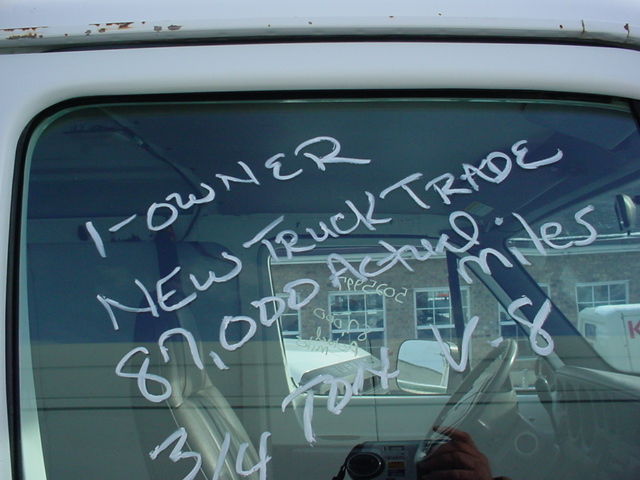 1-OWNER
NEW TRUCK TRADE
87,000 Actual miles
3/4 TON V-8